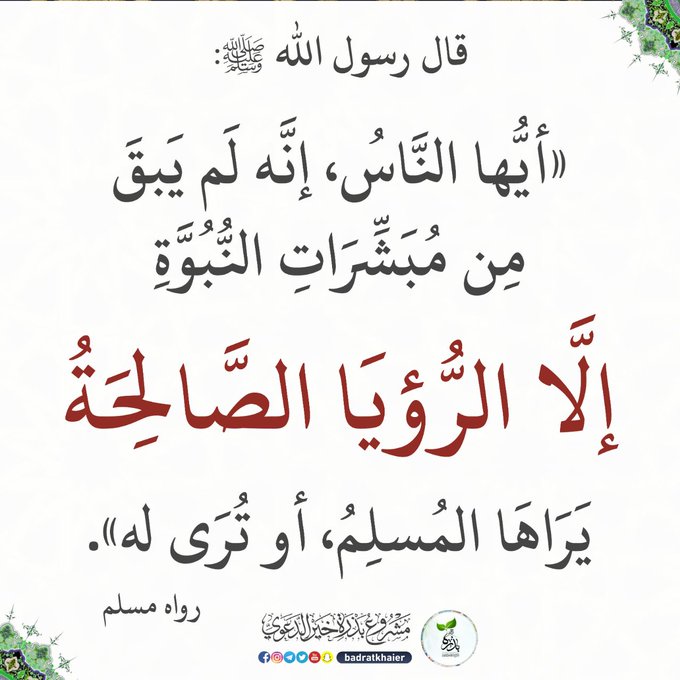 قال رسول الله ﷺ:
«أيُّها النَّاسُ، إنَّه لَم يَبقَ
مِن مُبَشِّرَاتِ النُّبُوَّةِ
إلَّا الرُّؤيَا الصَّالِحَةُ
يَرَاهَا المُسلِمُ، أو تُرَى له».
رواه مسلم
مشروع بذرة خير الدعوي
badratkhaier
بذرة